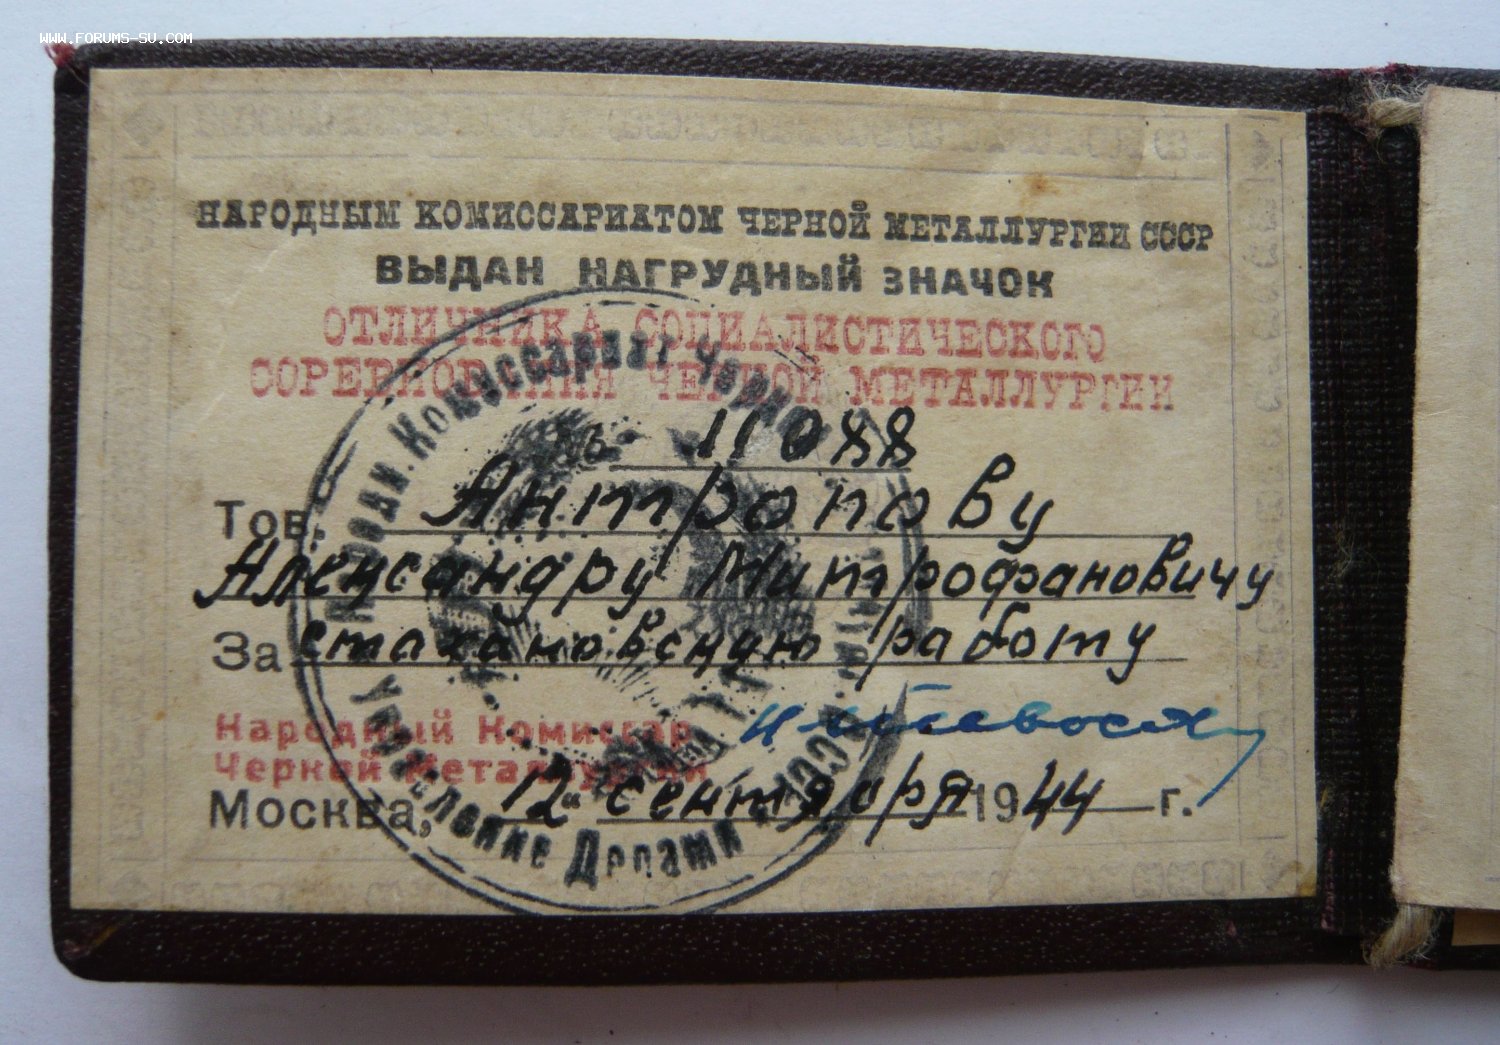 WWW.FORUMS-SU.COM
НАРОДНЫМ КОМИССАРИАТОМ ЧЕРНОЙ МЕТАЛЛУРГИИ СССР
ВЫДАН НАГРУДНЫЙ ЗНАЧОК
ОТЛИЧНИКА СОЦИАЛИСТИЧЕСКОГО
СОРЕВНОВАНИЯ ЧЕРНОЙ МЕТАЛЛУРГИИ
№ 11088
Тов. Антропову
Александру Митрофановичу
За стахановскую работу
Народный Комиссар
Черной Металлургии
Москва, 12 сентября 1944 г.
Комиссариат Черной
СССР
Управление Делами